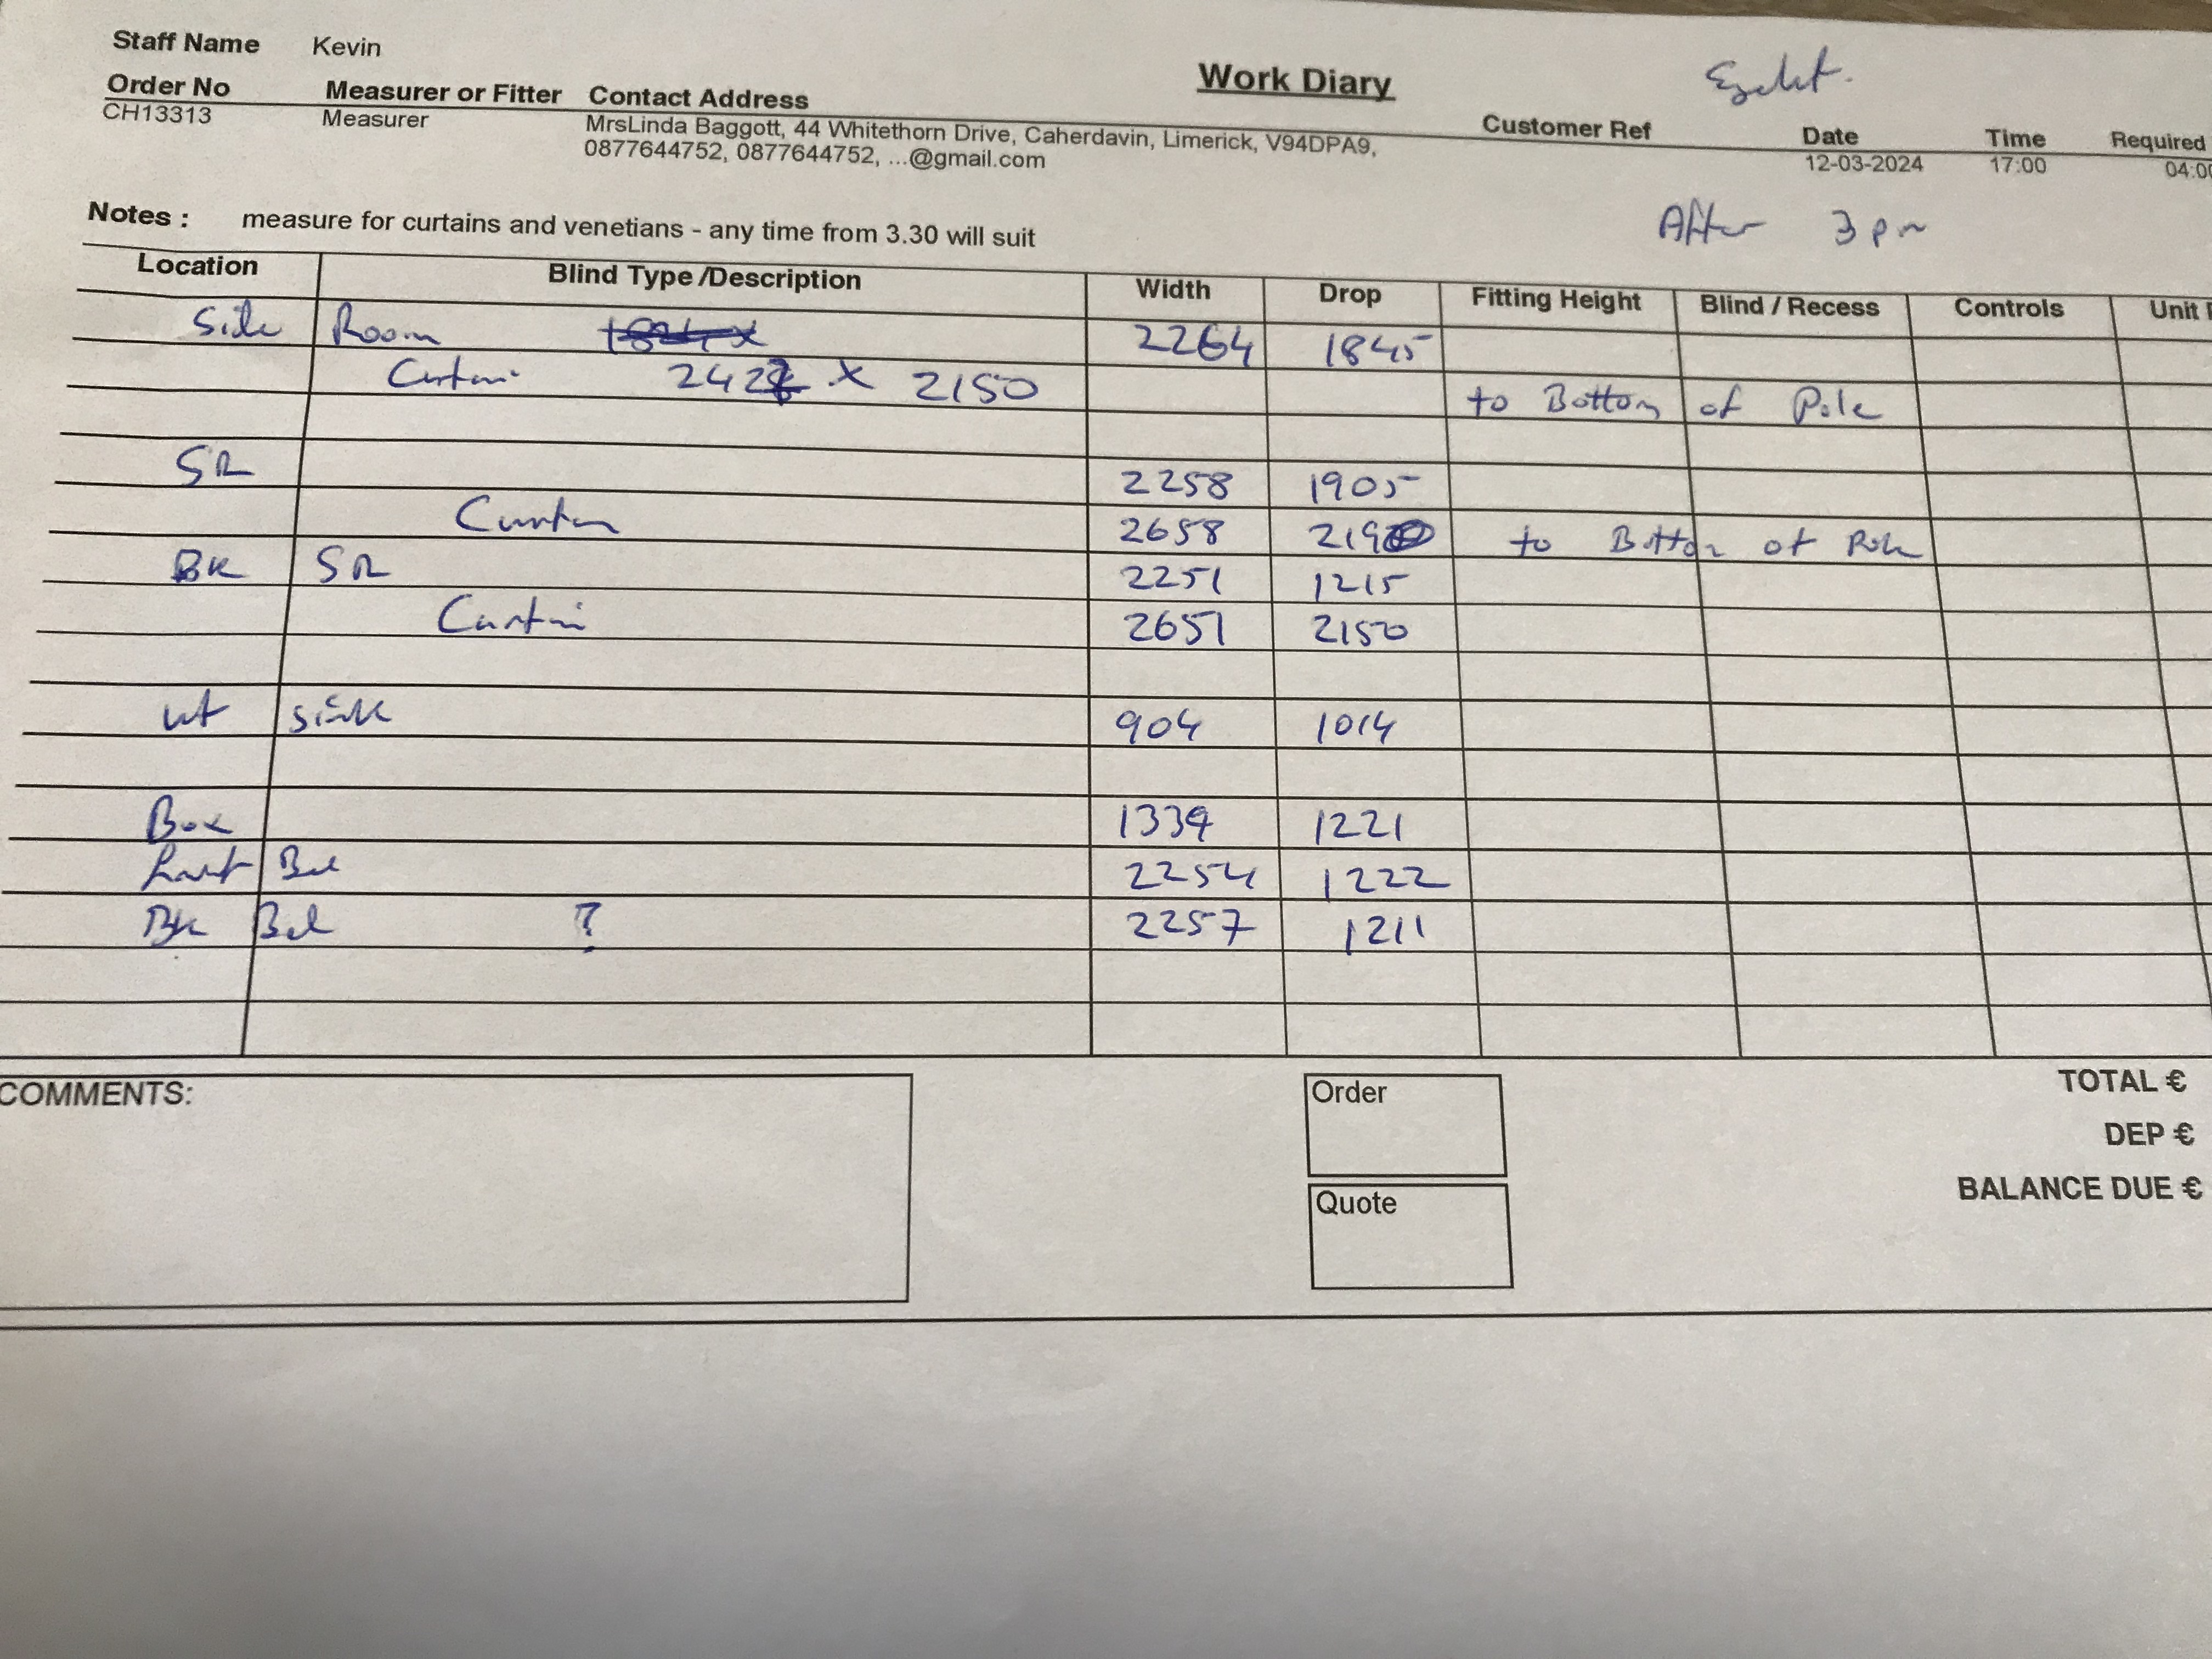 Staff Name Kevin
Work Diary
Order No Measurer or Fitter Contact Address Customer Ref Date Time Required
CH13313 Measurer MrsLinda Baggott, 44 Whitethorn Drive, Caherdavin, Limerick, V94DPA9, 12-03-2024 17:00 04:00
0877644752, 0877644752, ...@gmail.com
Notes : measure for curtains and venetians - any time from 3.30 will suit After 3 pm
Location Blind Type /Description Width Drop Fitting Height Blind / Recess Controls Unit
Side Room 2264 1845
Curtain x 2150 to Bottom of Pole
SR 2258 1905
Curtain 2658 to Bottom of Pole
BK SR 2251 1215
Curtain 2651 2150
ut sink 904 1014
Box 1339 1221
Bed 2254 1222
Bk Bed ? 2257 1211
COMMENTS: Order TOTAL €
DEP €
Quote BALANCE DUE €